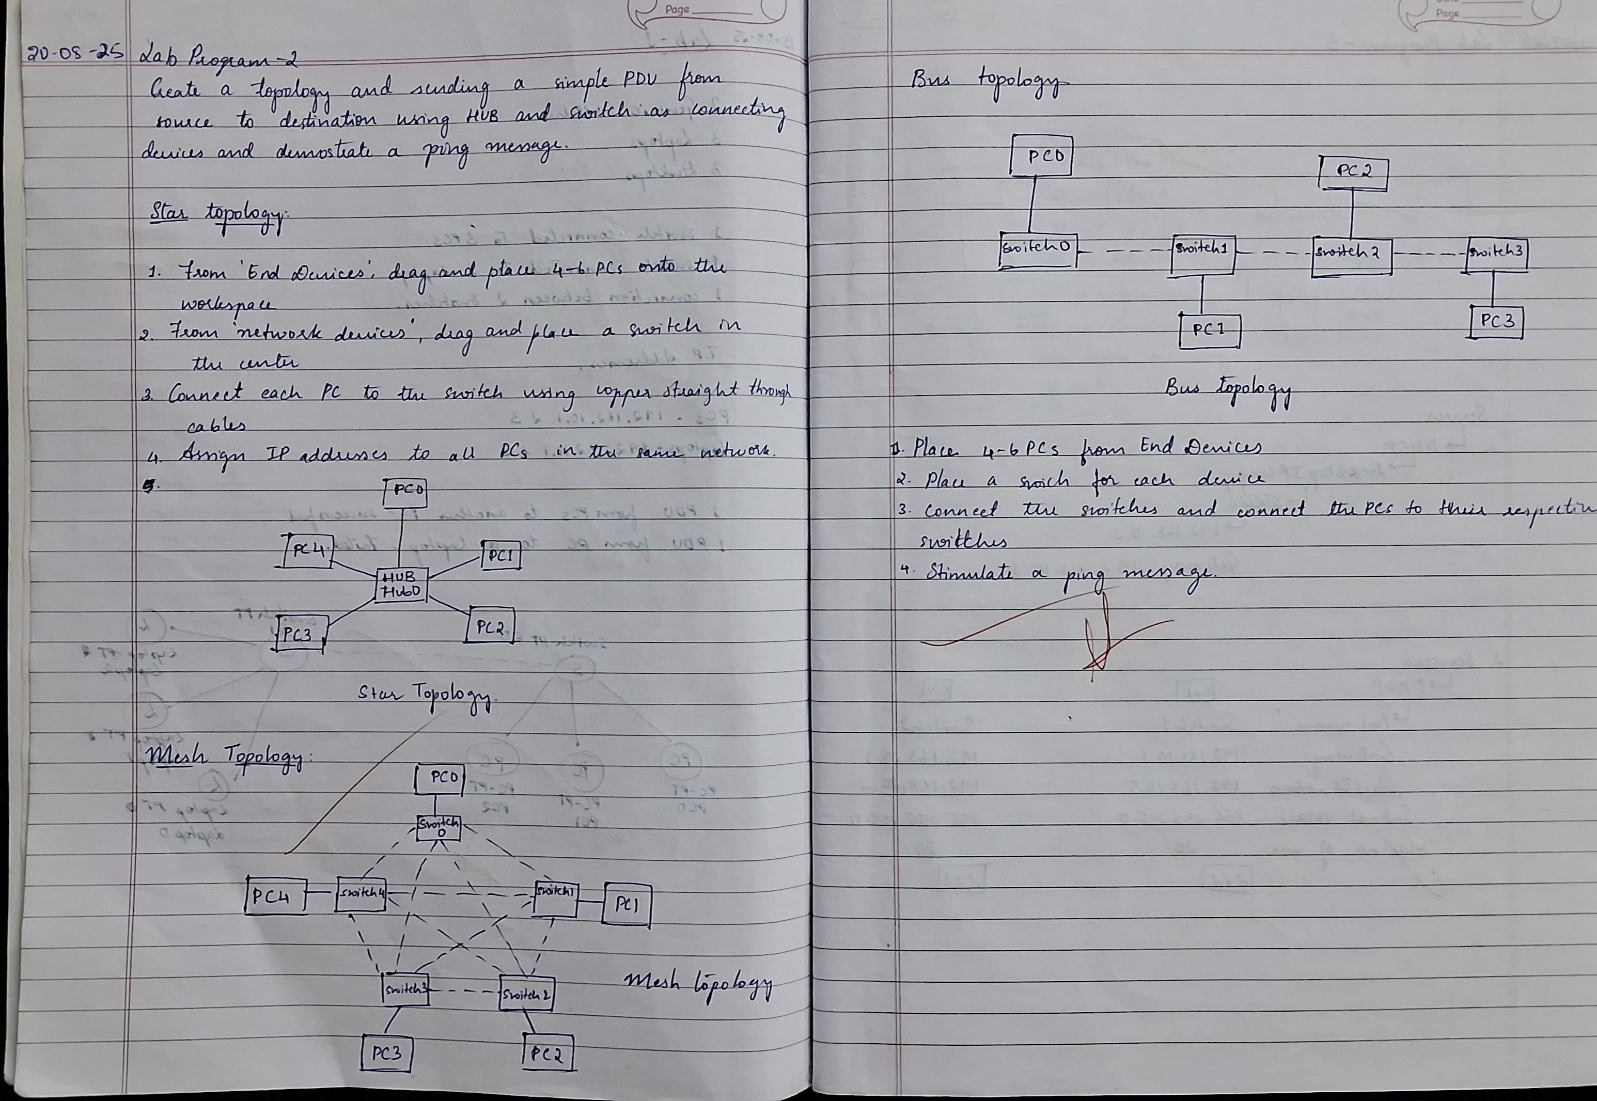 Page
20-08-25 Lab Program-2
Create a topology and sending a simple PDU from
source to destination using HUB and switch as connecting
devices and demostrate a ping message.
Star topology:
1. From 'End Devices', drag and place 4-6 PCs onto the
workspace
2. From 'network devices', drag and place a switch in
the center
3. Connect each PC to the switch using copper straight through
cables
4. Assign IP addresses to all PCs in the same network.
5.
PC0
PC4
PC1
HUB
Hub0
PC3
PC2
Star Topology.
Mesh Topology:
PC0
Switch
0
PC4
Switch4
Switch1
PC1
Switch3
Switch2
Mesh topology
PC3
PC2
Page
Bus topology
PC0
PC2
Switch0
Switch1
Switch2
Switch3
PC1
PC3
Bus topology
1. Place 4-6 PCs from End Devices
2. Place a swich for each device
3. Connect the switches and connect the PCs to their respective
switches
4. Stimulate a ping message.